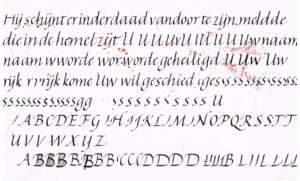 Hij schijnt er inderdaad vandoor te zijn, meldde
die in de hemel zijt U U U U U U U U U Uw naam
naam wworde worworde geheiligd U Uw Uw
rijk rivrijk kome Uw wil geschied iges sssssssssssss
sssssssssssssgg sssssssss U
IABCDEFGHIJKLMNOPQRSSTT
UVVWXYZ
ABBBBBBCCCDDDD